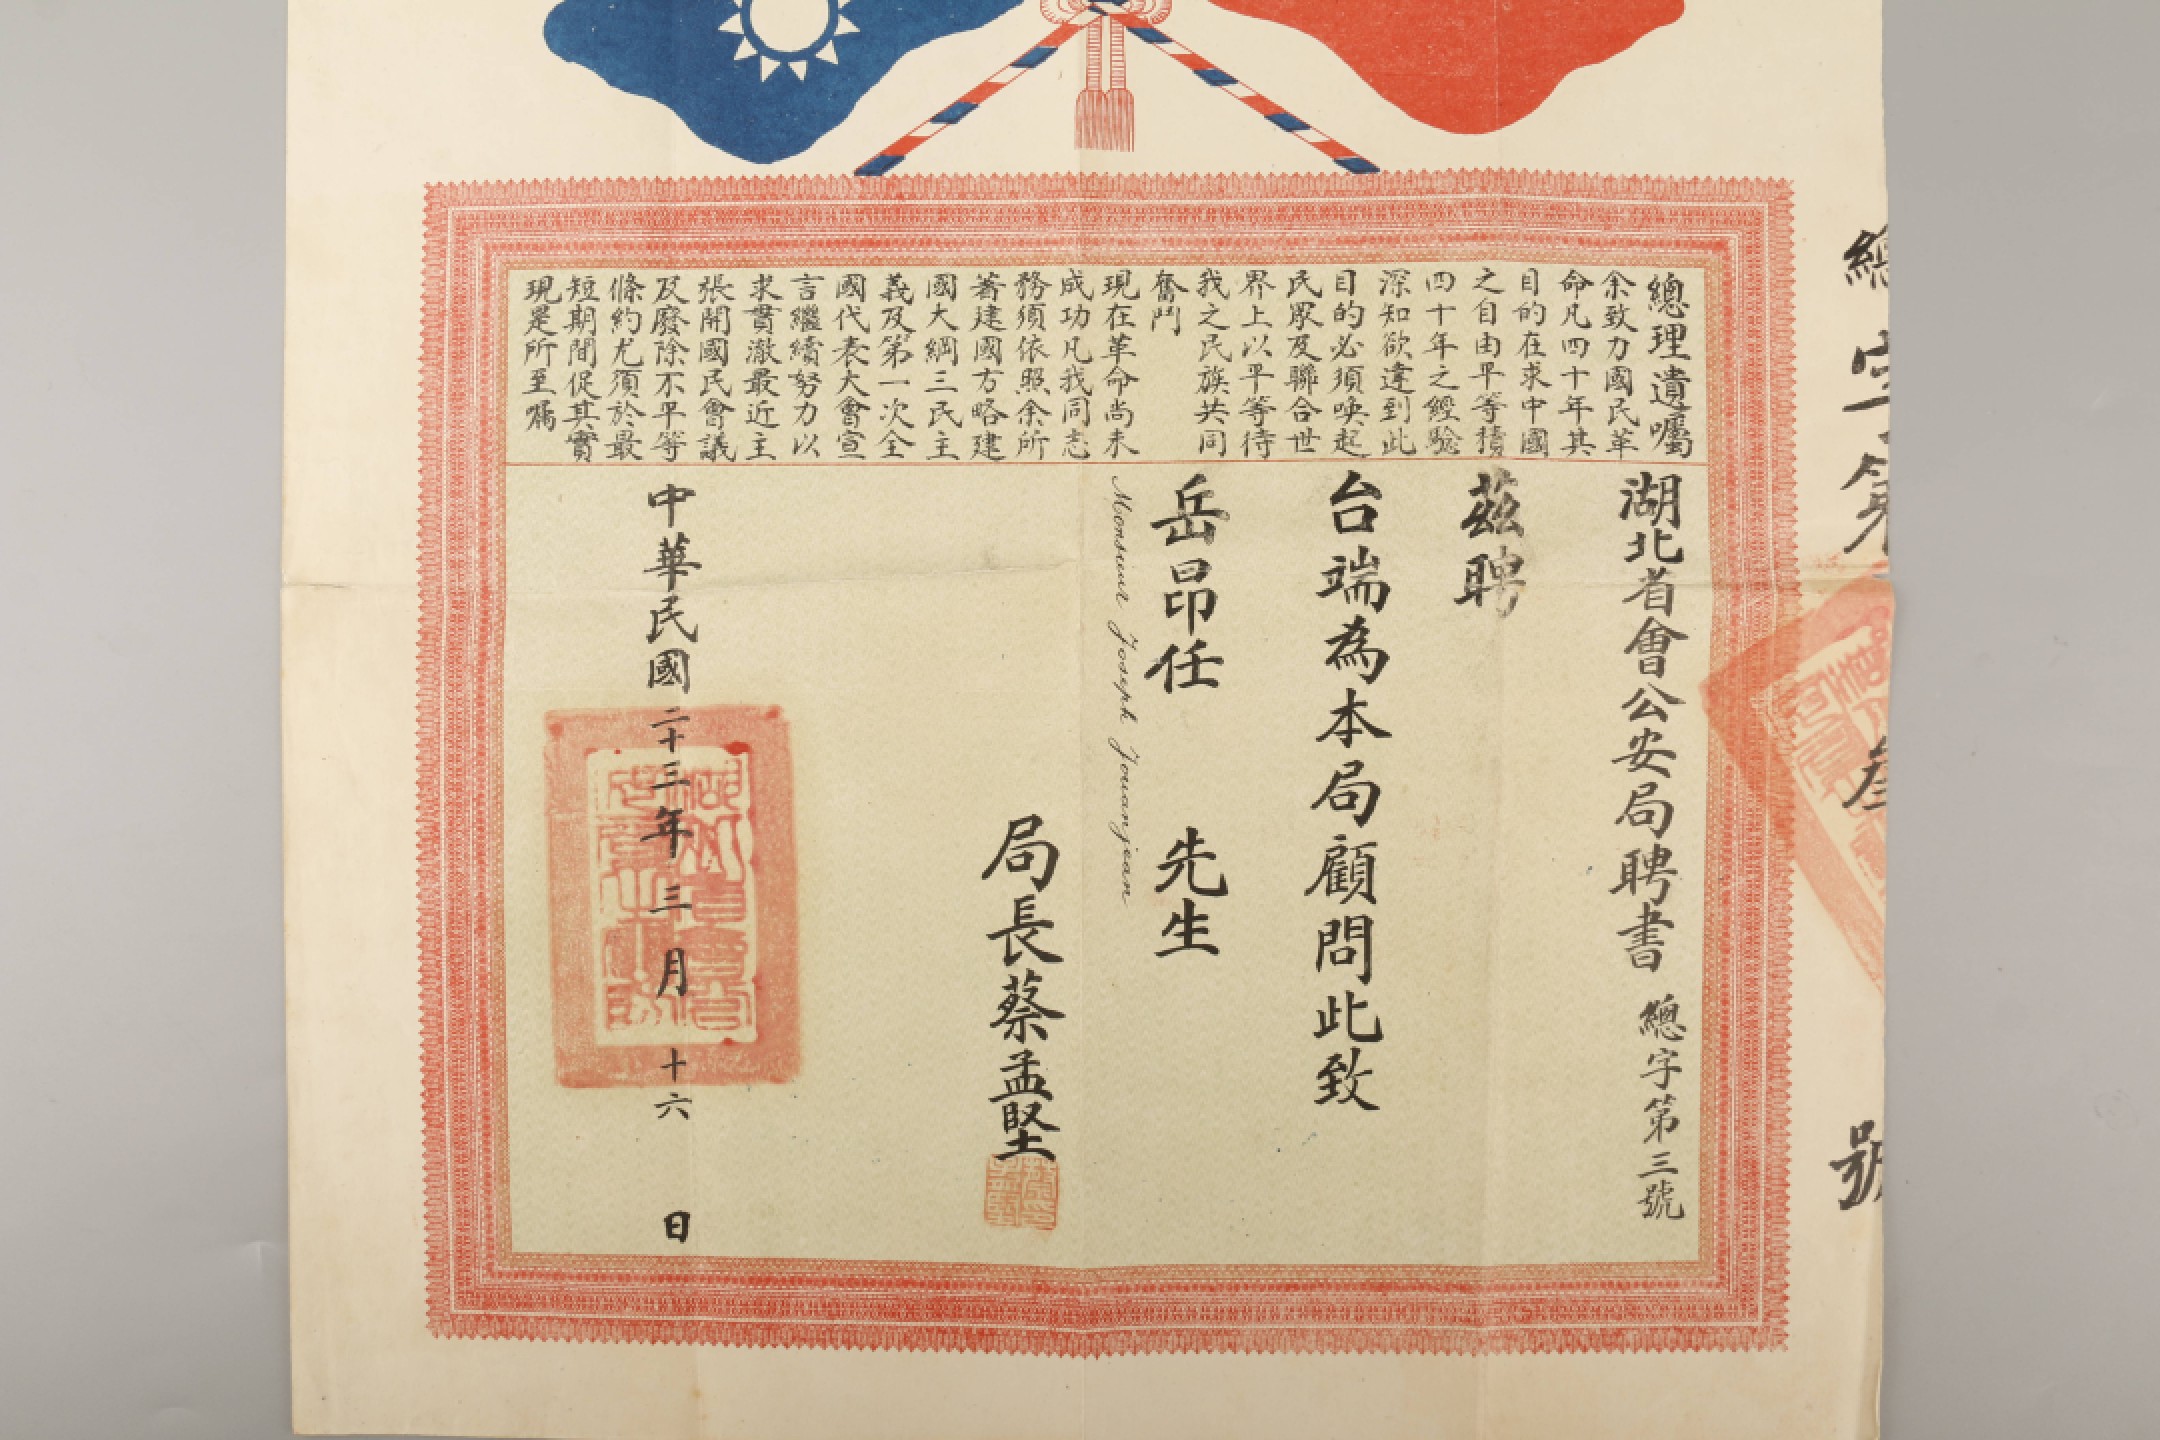 總理遺囑
余致力國民革
命凡四十年其
目的在求中國
之自由平等積
四十年之經驗
深知欲達到此
目的必須喚起
民眾及聯合世
界上以平等待
我之民族共同
奮鬥
現在革命尚未
成功凡我同志
務須依照余所
著建國方略建
國大綱三民主
義及第一次全
國代表大會宣
言繼續努力以
求貫澈最近主
張開國民會議
及廢除不平等
條約尤須於最
短期間促其實
現是所至囑
湖北省會公安局聘書 總字第三號
茲聘
台端為本局顧問此致
岳昂任 先生
Monsieur Joseph Jouanjean
局長蔡孟堅
中華民國二十三年三月十六日
總字第 叁 號